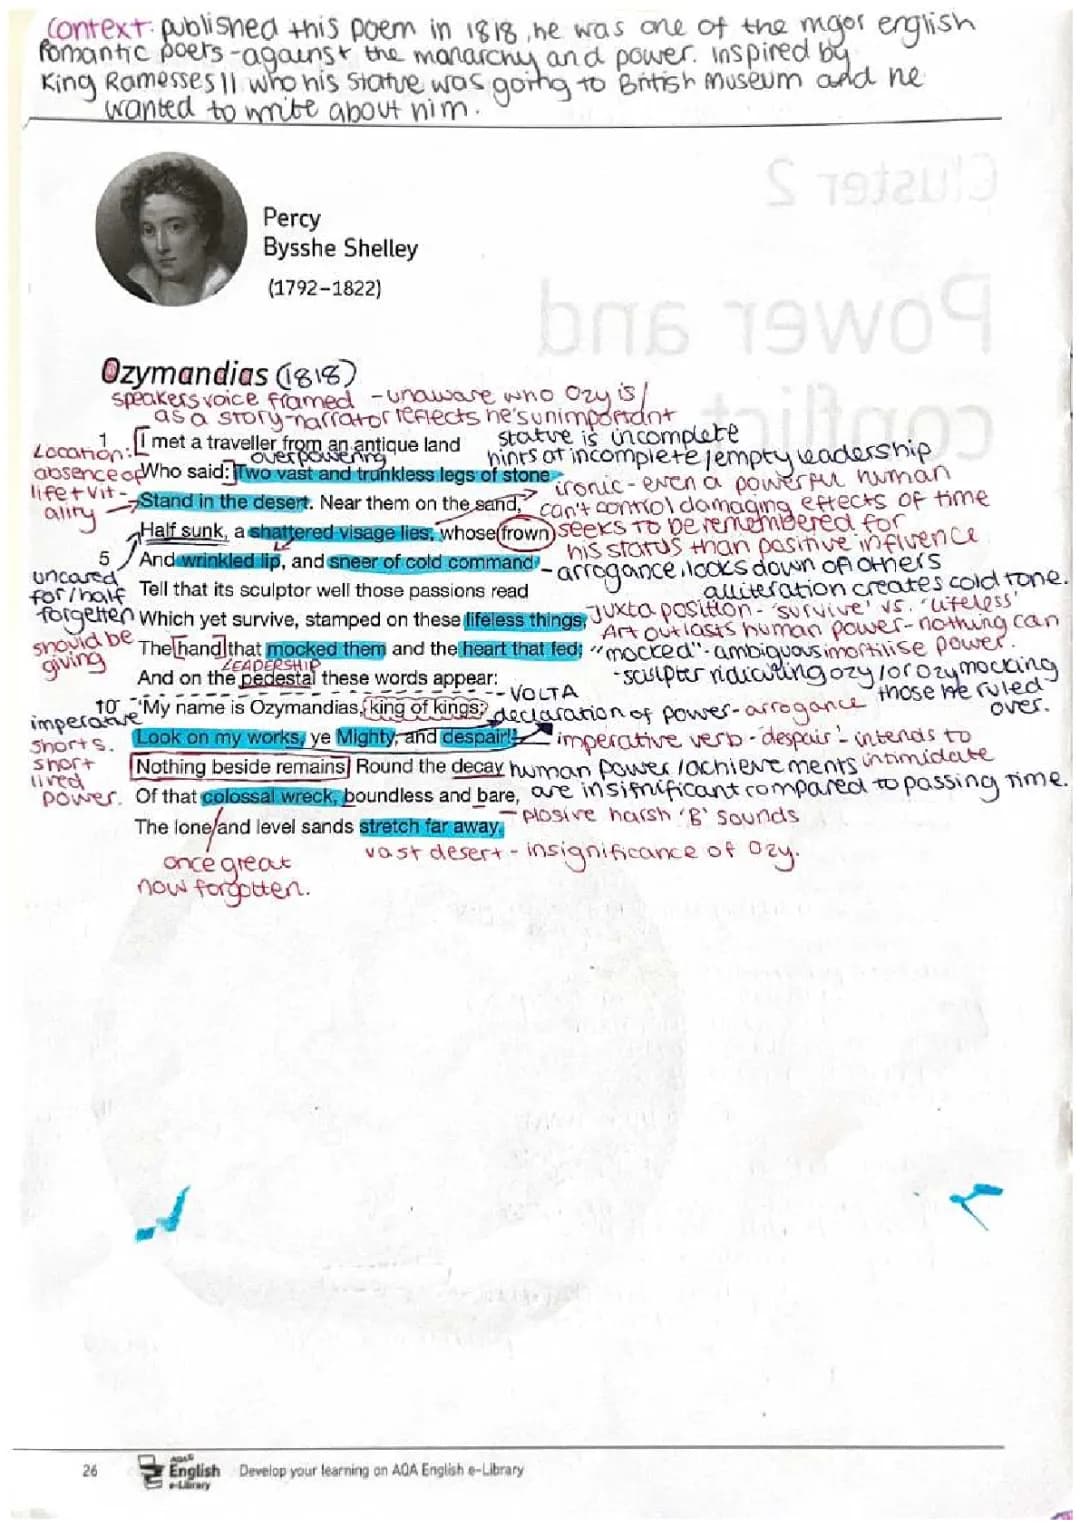 Context: published this poem in 1818, he was one of the major english
Romantic poets - against the monarchy and power. Inspired by
King Ramesses II who his statue was going to British museum and he
wanted to write about him.
Cluster 2
Power and
conflict
Percy
Bysshe Shelley
(1792–1822)
Ozymandias (1818)
speakers voice framed - unaware who Ozy is/
as a story-narrator reflects he's unimportant
1 I met a traveller from an antique land
statue is incomplete
Location:
overpowering
hints at incomplete/empty leadership
absence of
Who said: Two vast and trunkless legs of stone
ironic - even a powerful human
life + vit-
ality
Stand in the desert. Near them on the sand,
can't control damaging effects of time
Half sunk, a shattered visage lies, whose frown
seeks to be remembered for
his status than positive influence
5 And wrinkled lip, and sneer of cold command
- arrogance, looks down of others
uncared
for/half
forgetten
Tell that its sculptor well those passions read
alliteration creates cold tone.
Which yet survive, stamped on these lifeless things,
Juxtaposition - 'survive' vs. 'lifeless'
Art outlasts human power - nothing can
immortilise power.
should be
giving
The [hand] that mocked them and the heart that fed;
"mocked" - ambiguous
- sculpter ridiculing ozy/or ozy mocking
those he ruled
over.
LEADERSHIP
And on the pedestal these words appear:
VOLTA
10 'My name is Ozymandias, king of kings;
declaration of power - arrogance
imperative
Look on my works, ye Mighty, and despair!'
imperative verb - 'despair' - intends to
intimidate
short s.
short
lived
power.
Nothing beside remains. Round the decay
human power/achievements
are insifnificant compared to passing time.
Of that colossal wreck, boundless and bare,
- plosive harsh 'B' sounds
The lone and level sands stretch far away.
vast desert - insignificance of Ozy.
once great
now forgotten.
26
AQA
English
e-Library
Develop your learning on AQA English e-Library